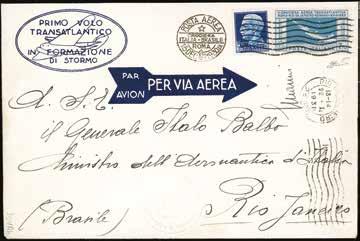 PRIMO VOLO
TRANSATLANTICO
IN FORMAZIONE
DI STORMO
POSTA AEREA
CROCIERA
ITALIA-BRASILE
ROMA
PAR
AVION
PER VIA AEREA
A. S. E.
il Generale Italo Balbo
Ministro dell'Aeronautica d'Italia
Rio Janeiro
(Brasile)